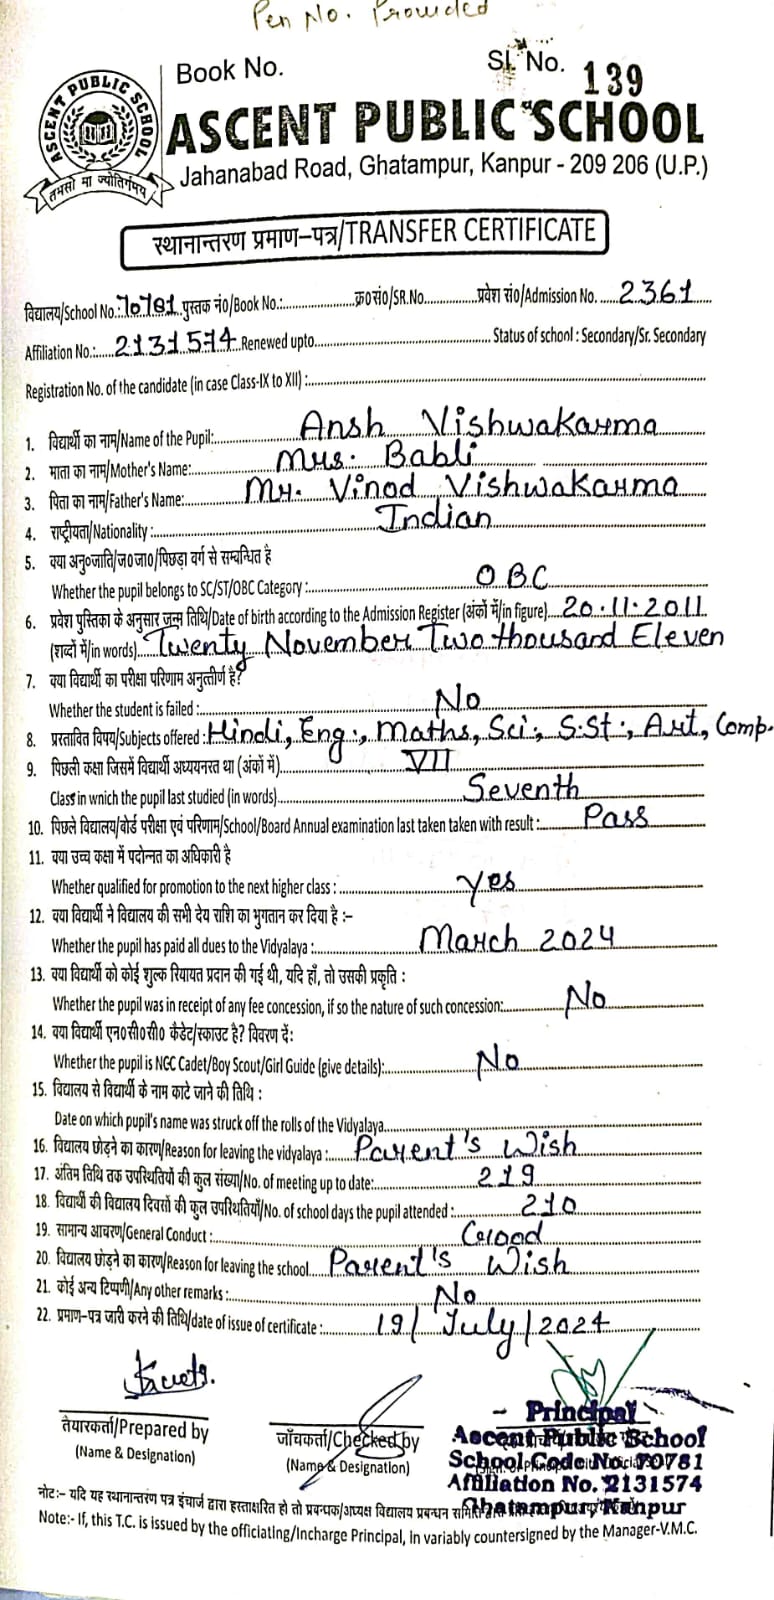 Pen No. Provided
Book No.
Sl. No. 139
ASCENT PUBLIC SCHOOL
तमसो मा ज्योतिर्गमय
ASCENT PUBLIC SCHOOL
Jahanabad Road, Ghatampur, Kanpur - 209 206 (U.P.)
स्थानान्तरण प्रमाण-पत्र/TRANSFER CERTIFICATE
विद्यालय/School No.: 70781 पुस्तक नं०/Book No.:.....क्र०सं०/SR.No.....प्रवेश सं०/Admission No. 2361
Affiliation No.: 2131574 Renewed upto..... Status of school : Secondary/Sr. Secondary
Registration No. of the candidate (in case Class-IX to XII) :
1. विद्यार्थी का नाम/Name of the Pupil: Ansh Vishwakarma
2. माता का नाम/Mother's Name: Mrs. Babli
3. पिता का नाम/Father's Name: Mr. Vinod Vishwakarma
4. राष्ट्रीयता/Nationality : Indian
5. क्या अनु०जाति/ज०जा०/पिछड़ा वर्ग से सम्बन्धित है
Whether the pupil belongs to SC/ST/OBC Category : OBC
6. प्रवेश पुस्तिका के अनुसार जन्म तिथि/Date of birth according to the Admission Register (अंकों में/in figure) 20.11.2011
(शब्दों में/in words) Twenty November Two thousand Eleven
7. क्या विद्यार्थी का परीक्षा परिणाम अनुत्तीर्ण है?
Whether the student is failed : No
8. प्रस्तावित विषय/Subjects offered : Hindi, Eng., Maths, Sci., S.St., Art, Comp.
9. पिछली कक्षा जिसमें विद्यार्थी अध्ययनरत था (अंकों में) VII
Class in which the pupil last studied (in words) Seventh
10. पिछले विद्यालय/बोर्ड परीक्षा एवं परिणाम/School/Board Annual examination last taken taken with result : Pass
11. क्या उच्च कक्षा में पदोन्नत का अधिकारी है
Whether qualified for promotion to the next higher class : Yes
12. क्या विद्यार्थी ने विद्यालय की सभी देय राशि का भुगतान कर दिया है :-
Whether the pupil has paid all dues to the Vidyalaya : March 2024
13. क्या विद्यार्थी को कोई शुल्क रियायत प्रदान की गई थी, यदि हाँ, तो उसकी प्रकृति :
Whether the pupil was in receipt of any fee concession, if so the nature of such concession: No
14. क्या विद्यार्थी एन०सी०सी० कैडेट/स्काउट है? विवरण दें:
Whether the pupil is NGC Cadet/Boy Scout/Girl Guide (give details): No
15. विद्यालय से विद्यार्थी के नाम काटे जाने की तिथि :
Date on which pupil's name was struck off the rolls of the Vidyalaya
16. विद्यालय छोड़ने का कारण/Reason for leaving the vidyalaya : Parent's Wish
17. अंतिम तिथि तक उपस्थितियों की कुल संख्या/No. of meeting up to date: 219
18. विद्यार्थी की विद्यालय दिवसों की कुल उपस्थितियाँ/No. of school days the pupil attended : 210
19. सामान्य आचरण/General Conduct : Good
20. विद्यालय छोड़ने का कारण/Reason for leaving the school Parent's Wish
21. कोई अन्य टिप्पणी/Any other remarks : No
22. प्रमाण-पत्र जारी करने की तिथि/date of issue of certificate : 19/July/2024
तैयारकर्ता/Prepared by
(Name & Designation)
जाँचकर्ता/Checked by
(Name & Designation)
Principal
Ascent Public School
School Code No. 70781
Affiliation No. 2131574
Ghatampur, Kanpur
नोट:- यदि यह स्थानान्तरण पत्र इंचार्ज द्वारा हस्ताक्षरित हो तो प्रबन्धक/अध्यक्ष विद्यालय प्रबन्धन समिति
Note:- If, this T.C. is issued by the officiating/Incharge Principal, in variably countersigned by the Manager-V.M.C.